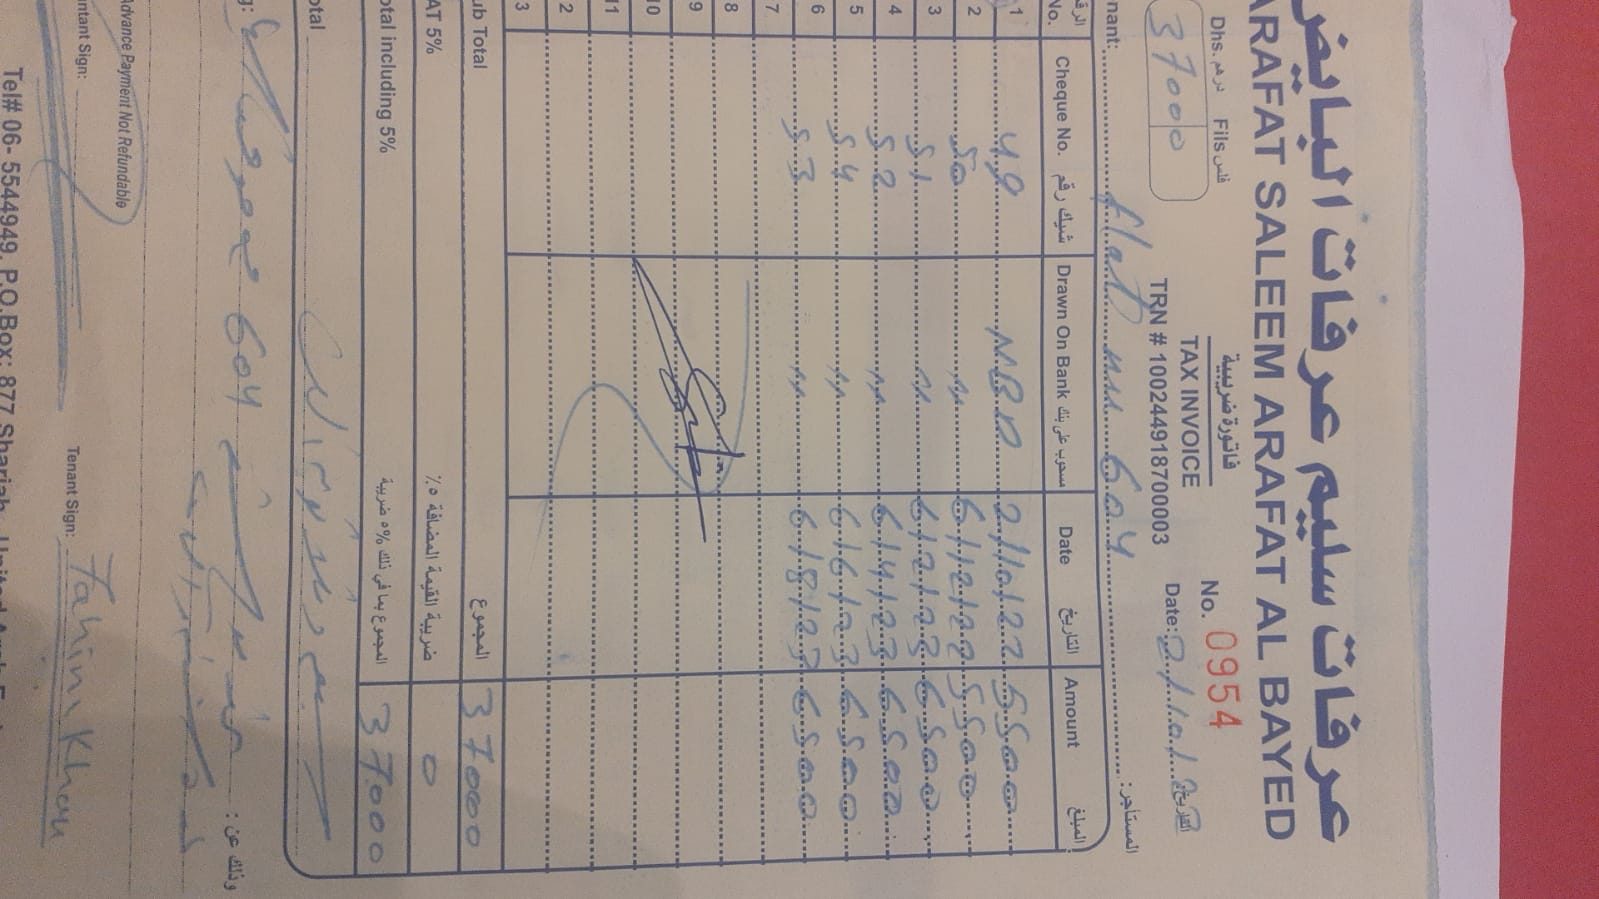 عرفات سليم عرفات البايض
ARAFAT SALEEM ARAFAT AL BAYED
Dhs. درهم Fils فلس
37000
فاتورة ضريبية
TAX INVOICE
TRN # 100244918700003
No. 0954
Date: 2/10/22 التاريخ
nant: flat 604 المستأجر:
No. Cheque No. شيك رقم Drawn On Bank مسحوب على بنك Date التاريخ Amount المبلغ
1 49 NBD 2/10/22 5500
2 50 " 6/12/22 5500
3 51 " 6/2/23 6500
4 52 " 6/4/23 6500
5 54 " 6/6/23 6500
6 53 " 6/8/23 6500
7
8
9
10
11
2
3
ub Total المجموع 37000
AT 5% ضريبة القيمة المضافة ٥٪ 0
otal including 5% المجموع بما في ذلك ٥% ضريبة 37000
otal
g: 604 وذلك عن:
Advance Payment Not Refundable
untant Sign: Tenant Sign: Fahim Khan
Tel# 06- 5544949, P.O.Box: 877 Sharjah